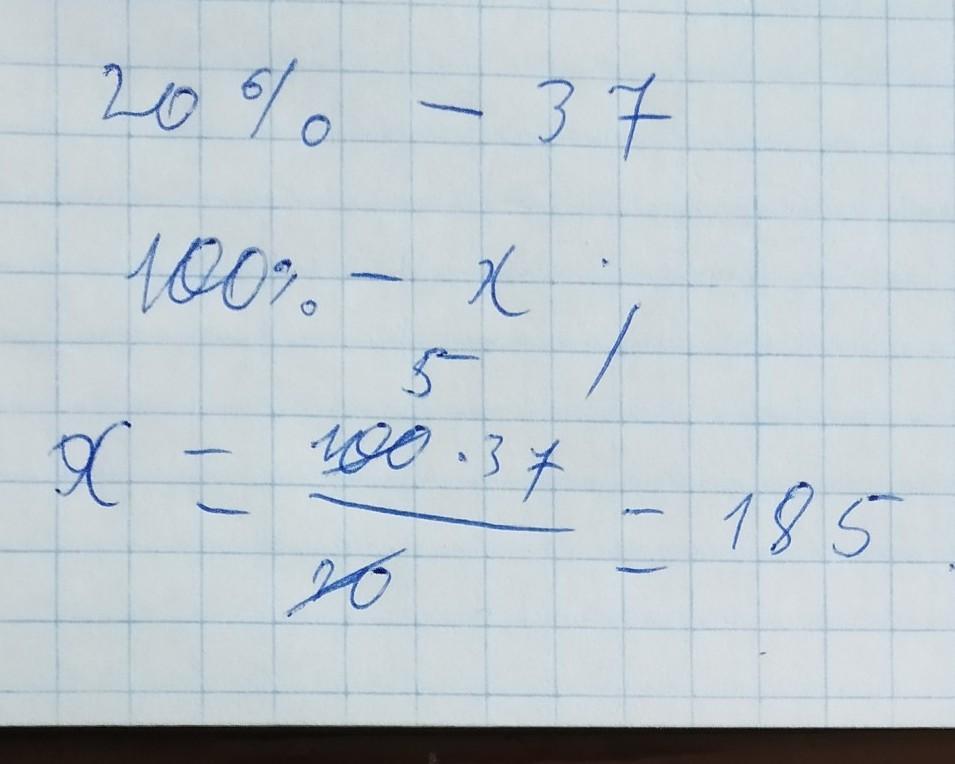 20% - 37
100% - x ;
5
x = 100 · 37 / 20 = 185